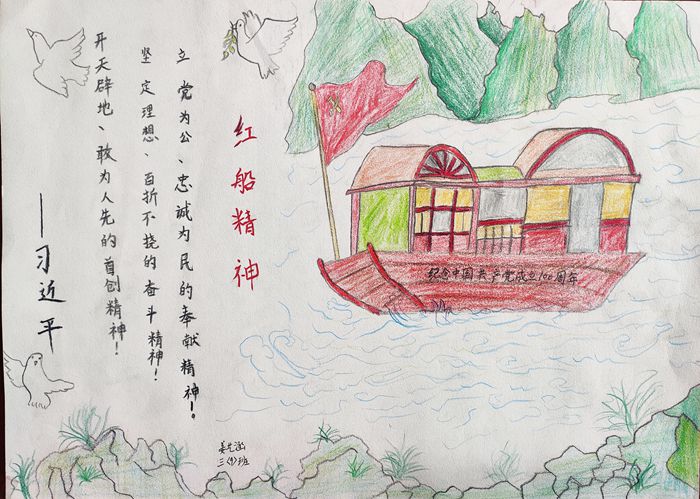 红船精神
立党为公、忠诚为民的奉献精神！。
坚定理想、百折不挠的奋斗精神！
开天辟地、敢为人先的首创精神！
——习近平
纪念中国共产党成立100周年
三(9)班